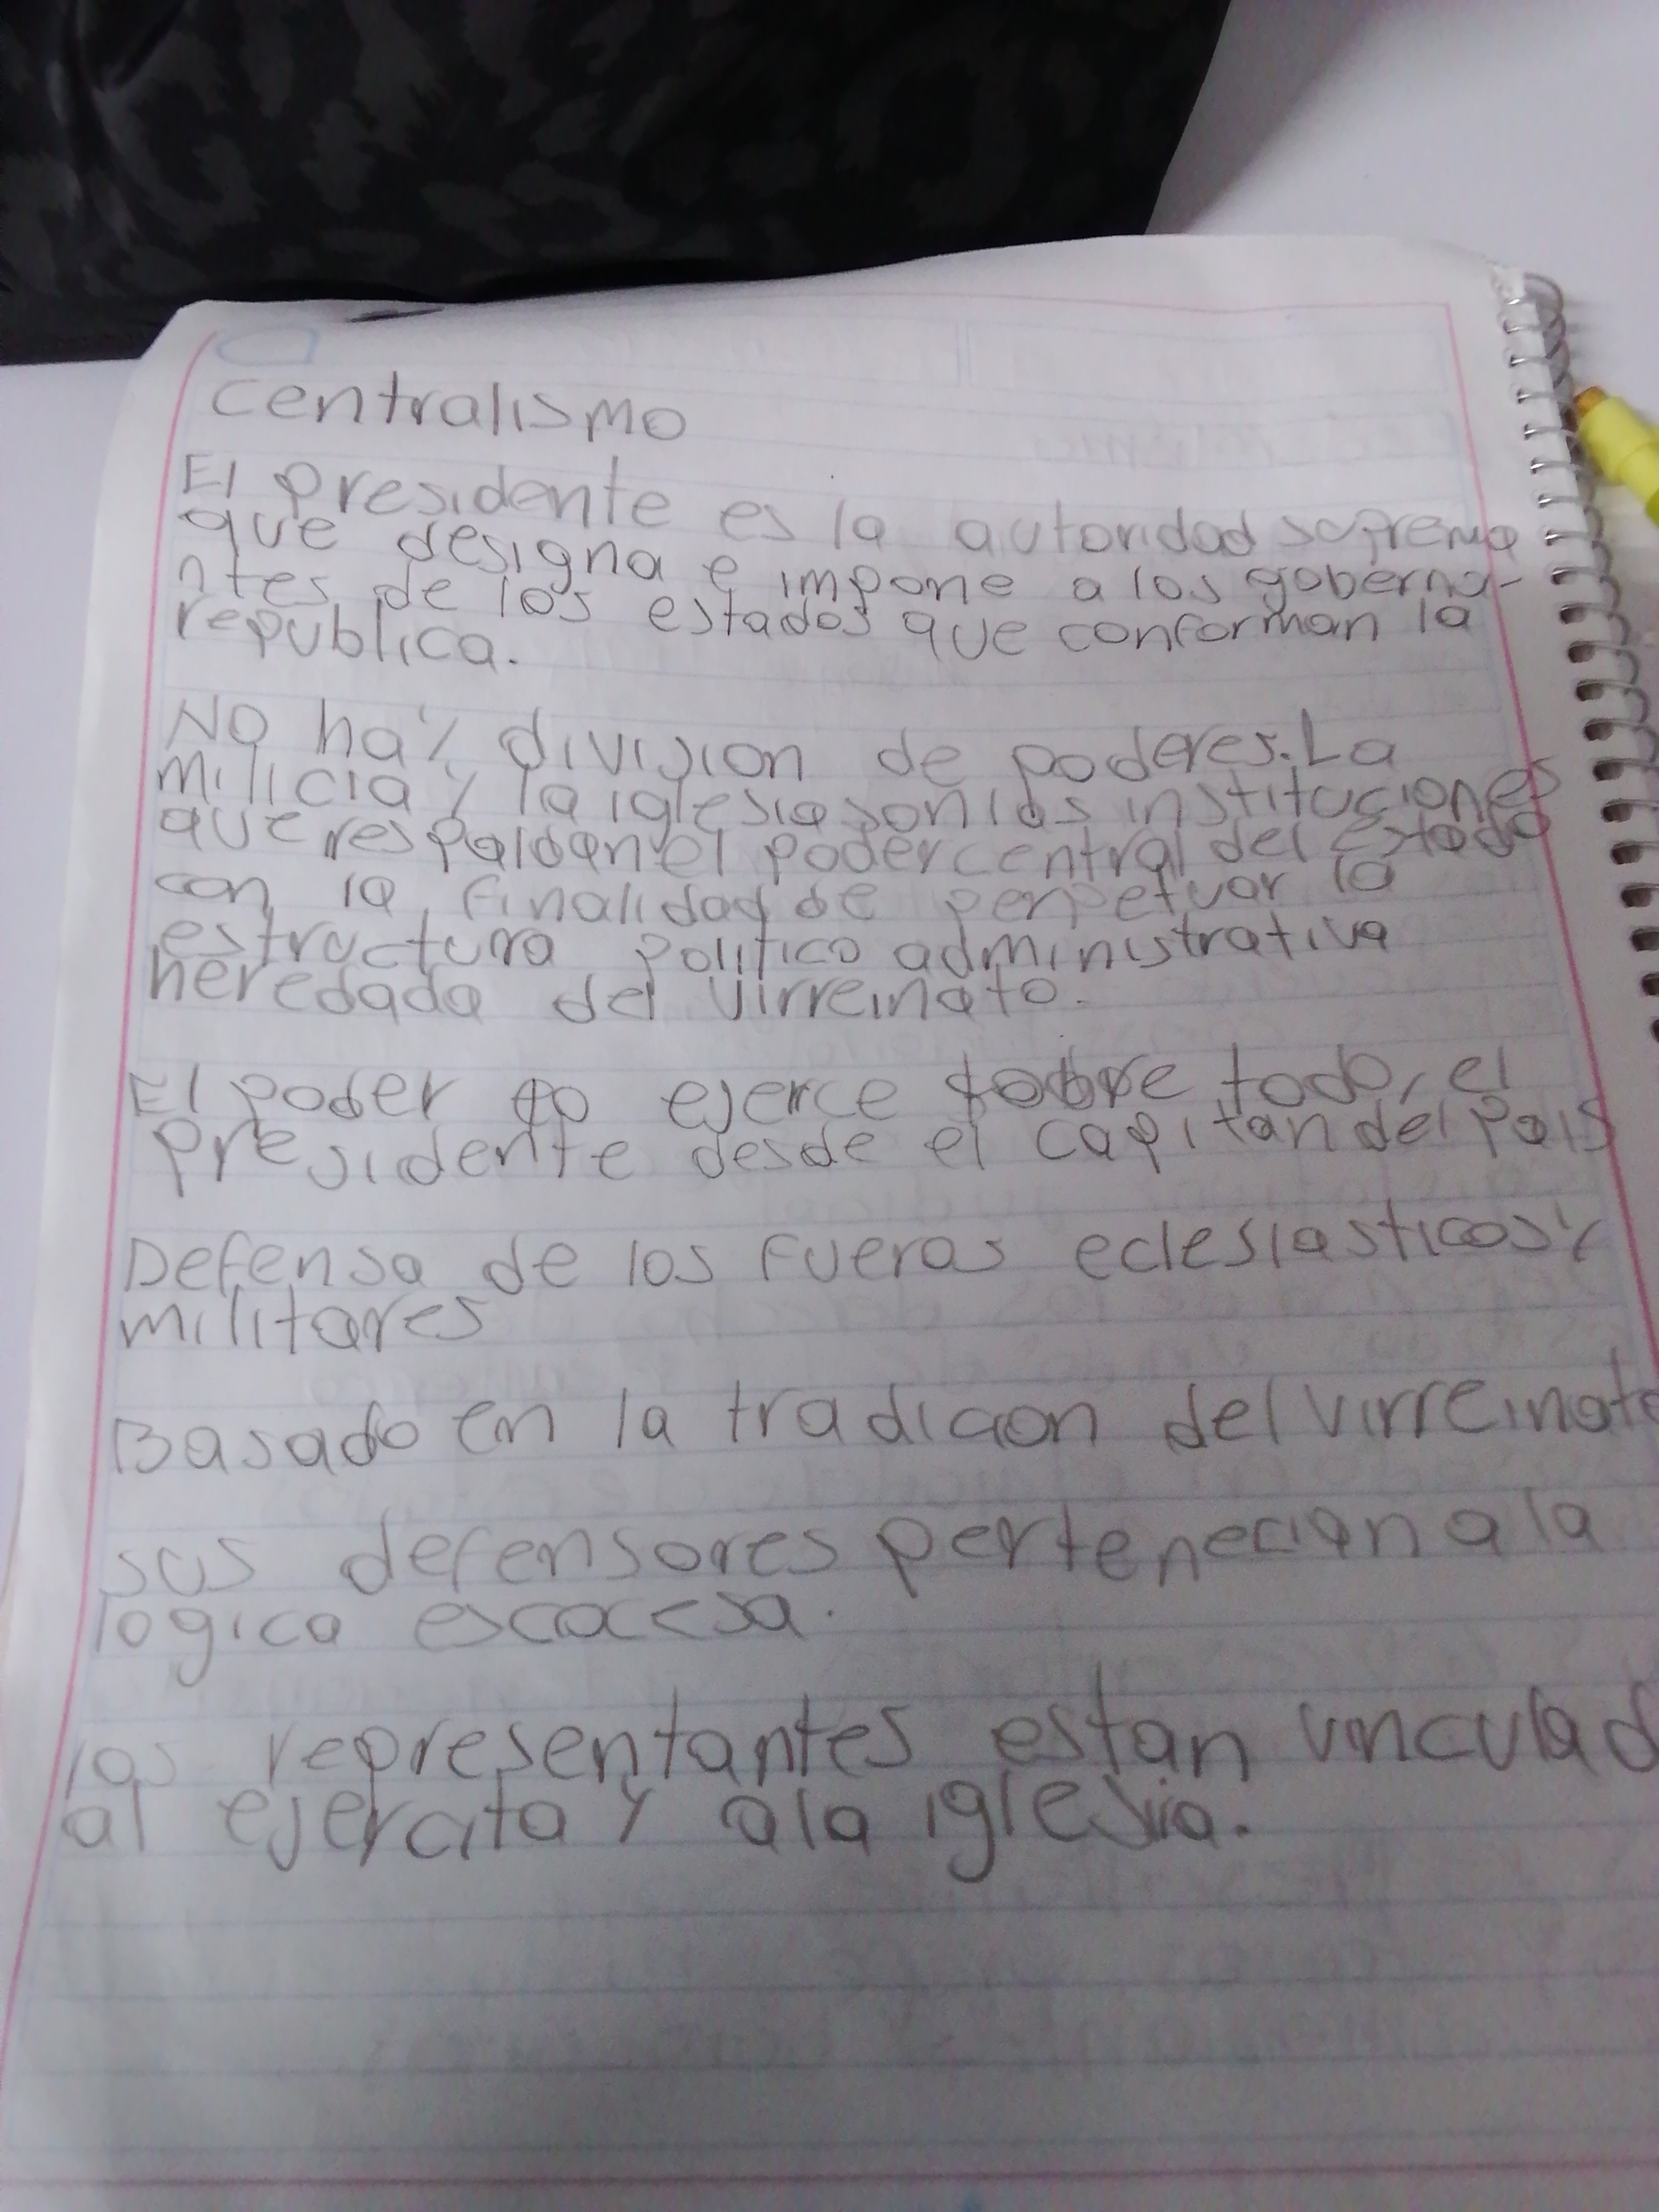 centralismo
El presidente es la autoridad suprema
que designa e impone a los goberna-
ntes de los estados que conforman la
republica.
No hay division de poderes. La
milicia y la iglesia son las instituciones
que respaldan el poder central del estado
con la finalidad de perpetuar la
estructura politico administrativa
heredada del virreinato.
El poder lo ejerce sobre todo, el
presidente desde el capitan del pais
Defensa de los fueros eclesiasticos y
militares
Basado en la tradicion del virreinato
sus defensores pertenecian a la
logica escocesa.
los representantes estan vinculad
al ejercito y a la iglesia.